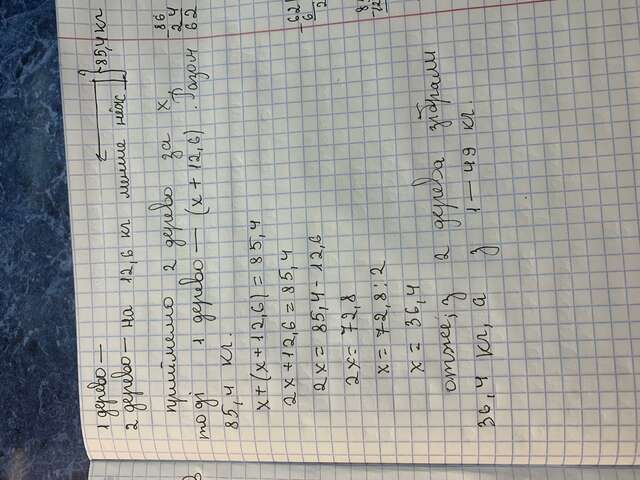 1 дерево —
2 дерево — на 12,6 кг менше ніж
? 85,4 кг
приймемо 2 дерево за x,
тоді 1 дерево — (x + 12,6). Разом
85,4 кг.
86
24
62
x+(x+12,6)=85,4
2x+12,6=85,4
2x=85,4-12,6
2x=72,8
x=72,8:2
x=36,4
отже; з 2 дерева зібрали
36,4 кг, а з 1 — 49 кг.